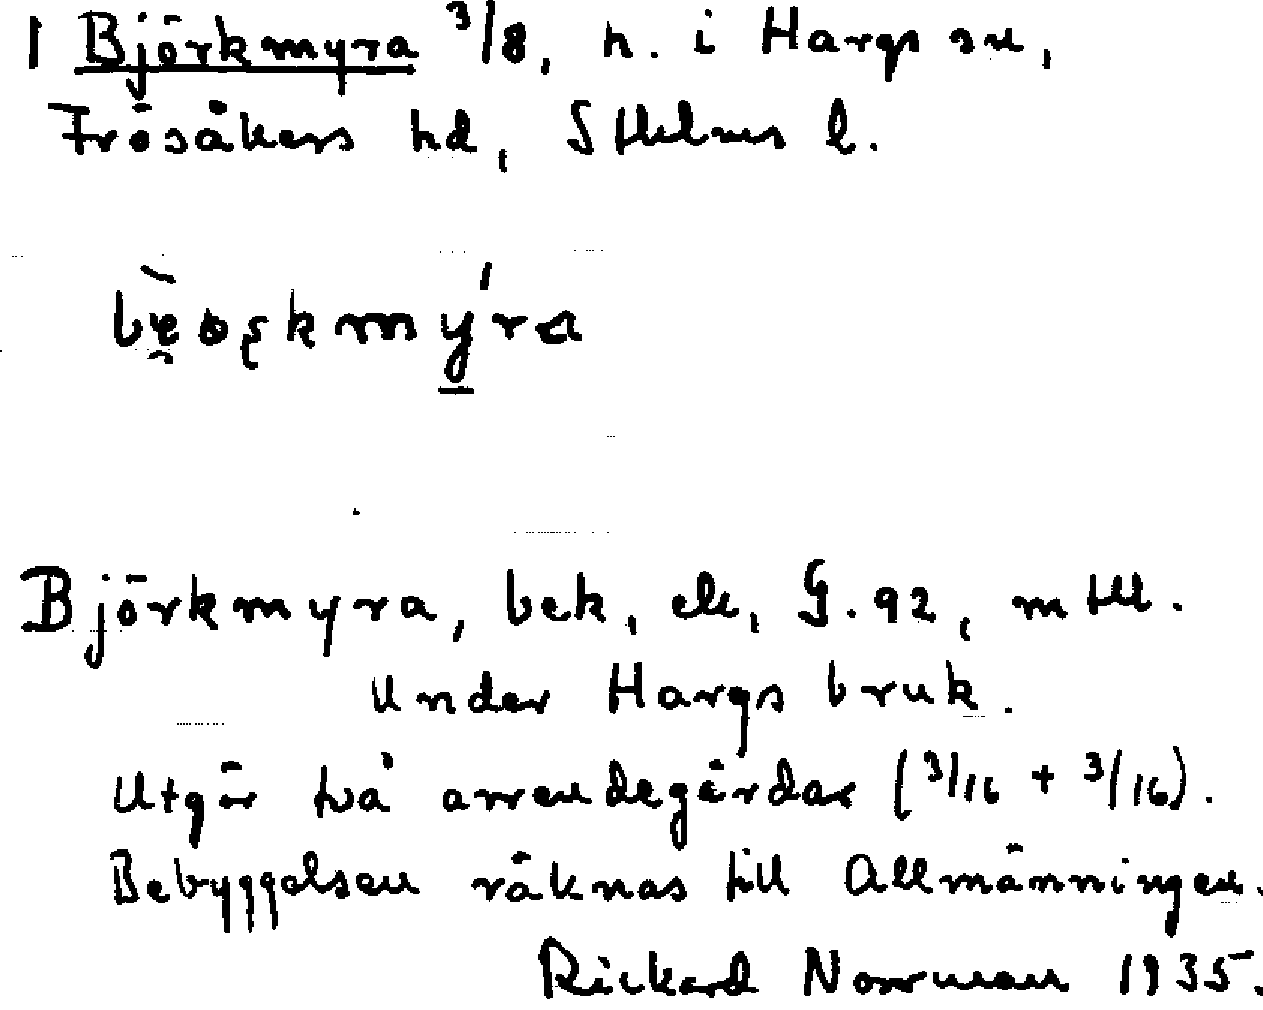 1 Björkmyra 3/8, h. i Hargs sn,
Frösåkers hd, Sthlms l.
Björkmyra, bek, ek, G. 92, mtll.
Under Hargs bruk.
Utgör två arrendegårdar (3/16 + 3/16).
Bebyggelsen räknas till Allmänningen.
Rickard Norrman 1935.